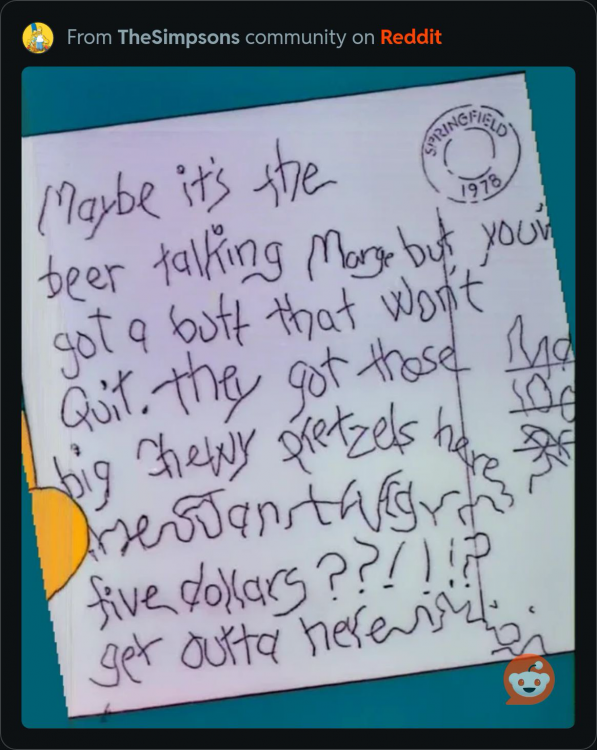 From TheSimpsons community on Reddit
SPRINGFIELD
1978
Maybe it's the
beer talking Marge but you'v
got a butt that won't
Quit. they got those
big chewy pretzels here
five dollars ??!!!?
get outta here